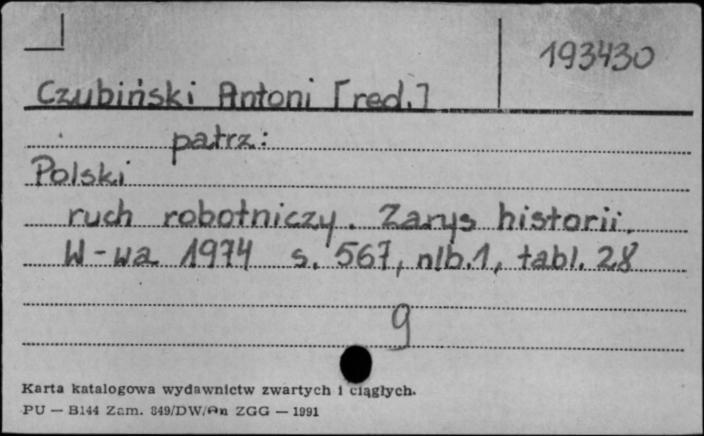 193430
Czubiński Antoni [red.]
patrz:
Polski
ruch robotniczy. Zarys historii.
W-wa 1974 s. 567, nlb.1, tabl. 28
g
Karta katalogowa wydawnictw zwartych i ciągłych.
PU — B144 Zam. 849/DW/An ZGG — 1991